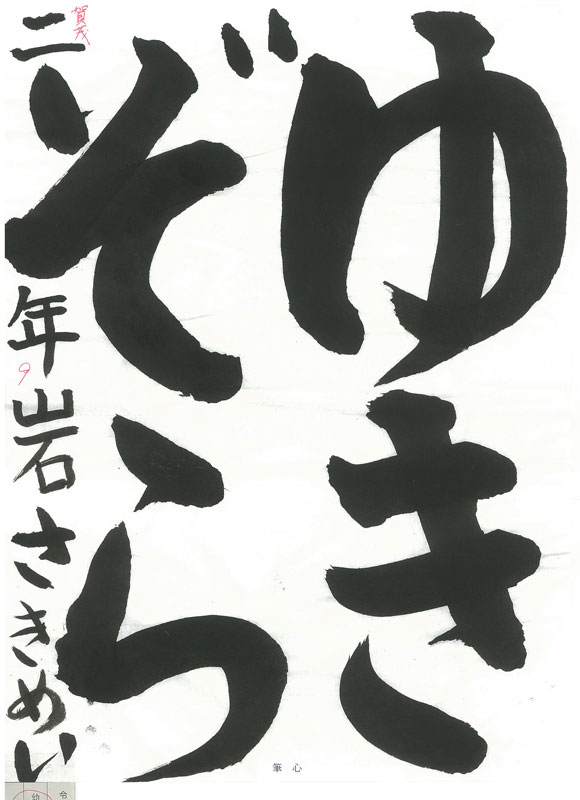 ゆき
ぞら
二年岩さきめい
賀茂
9
筆心
令
幼